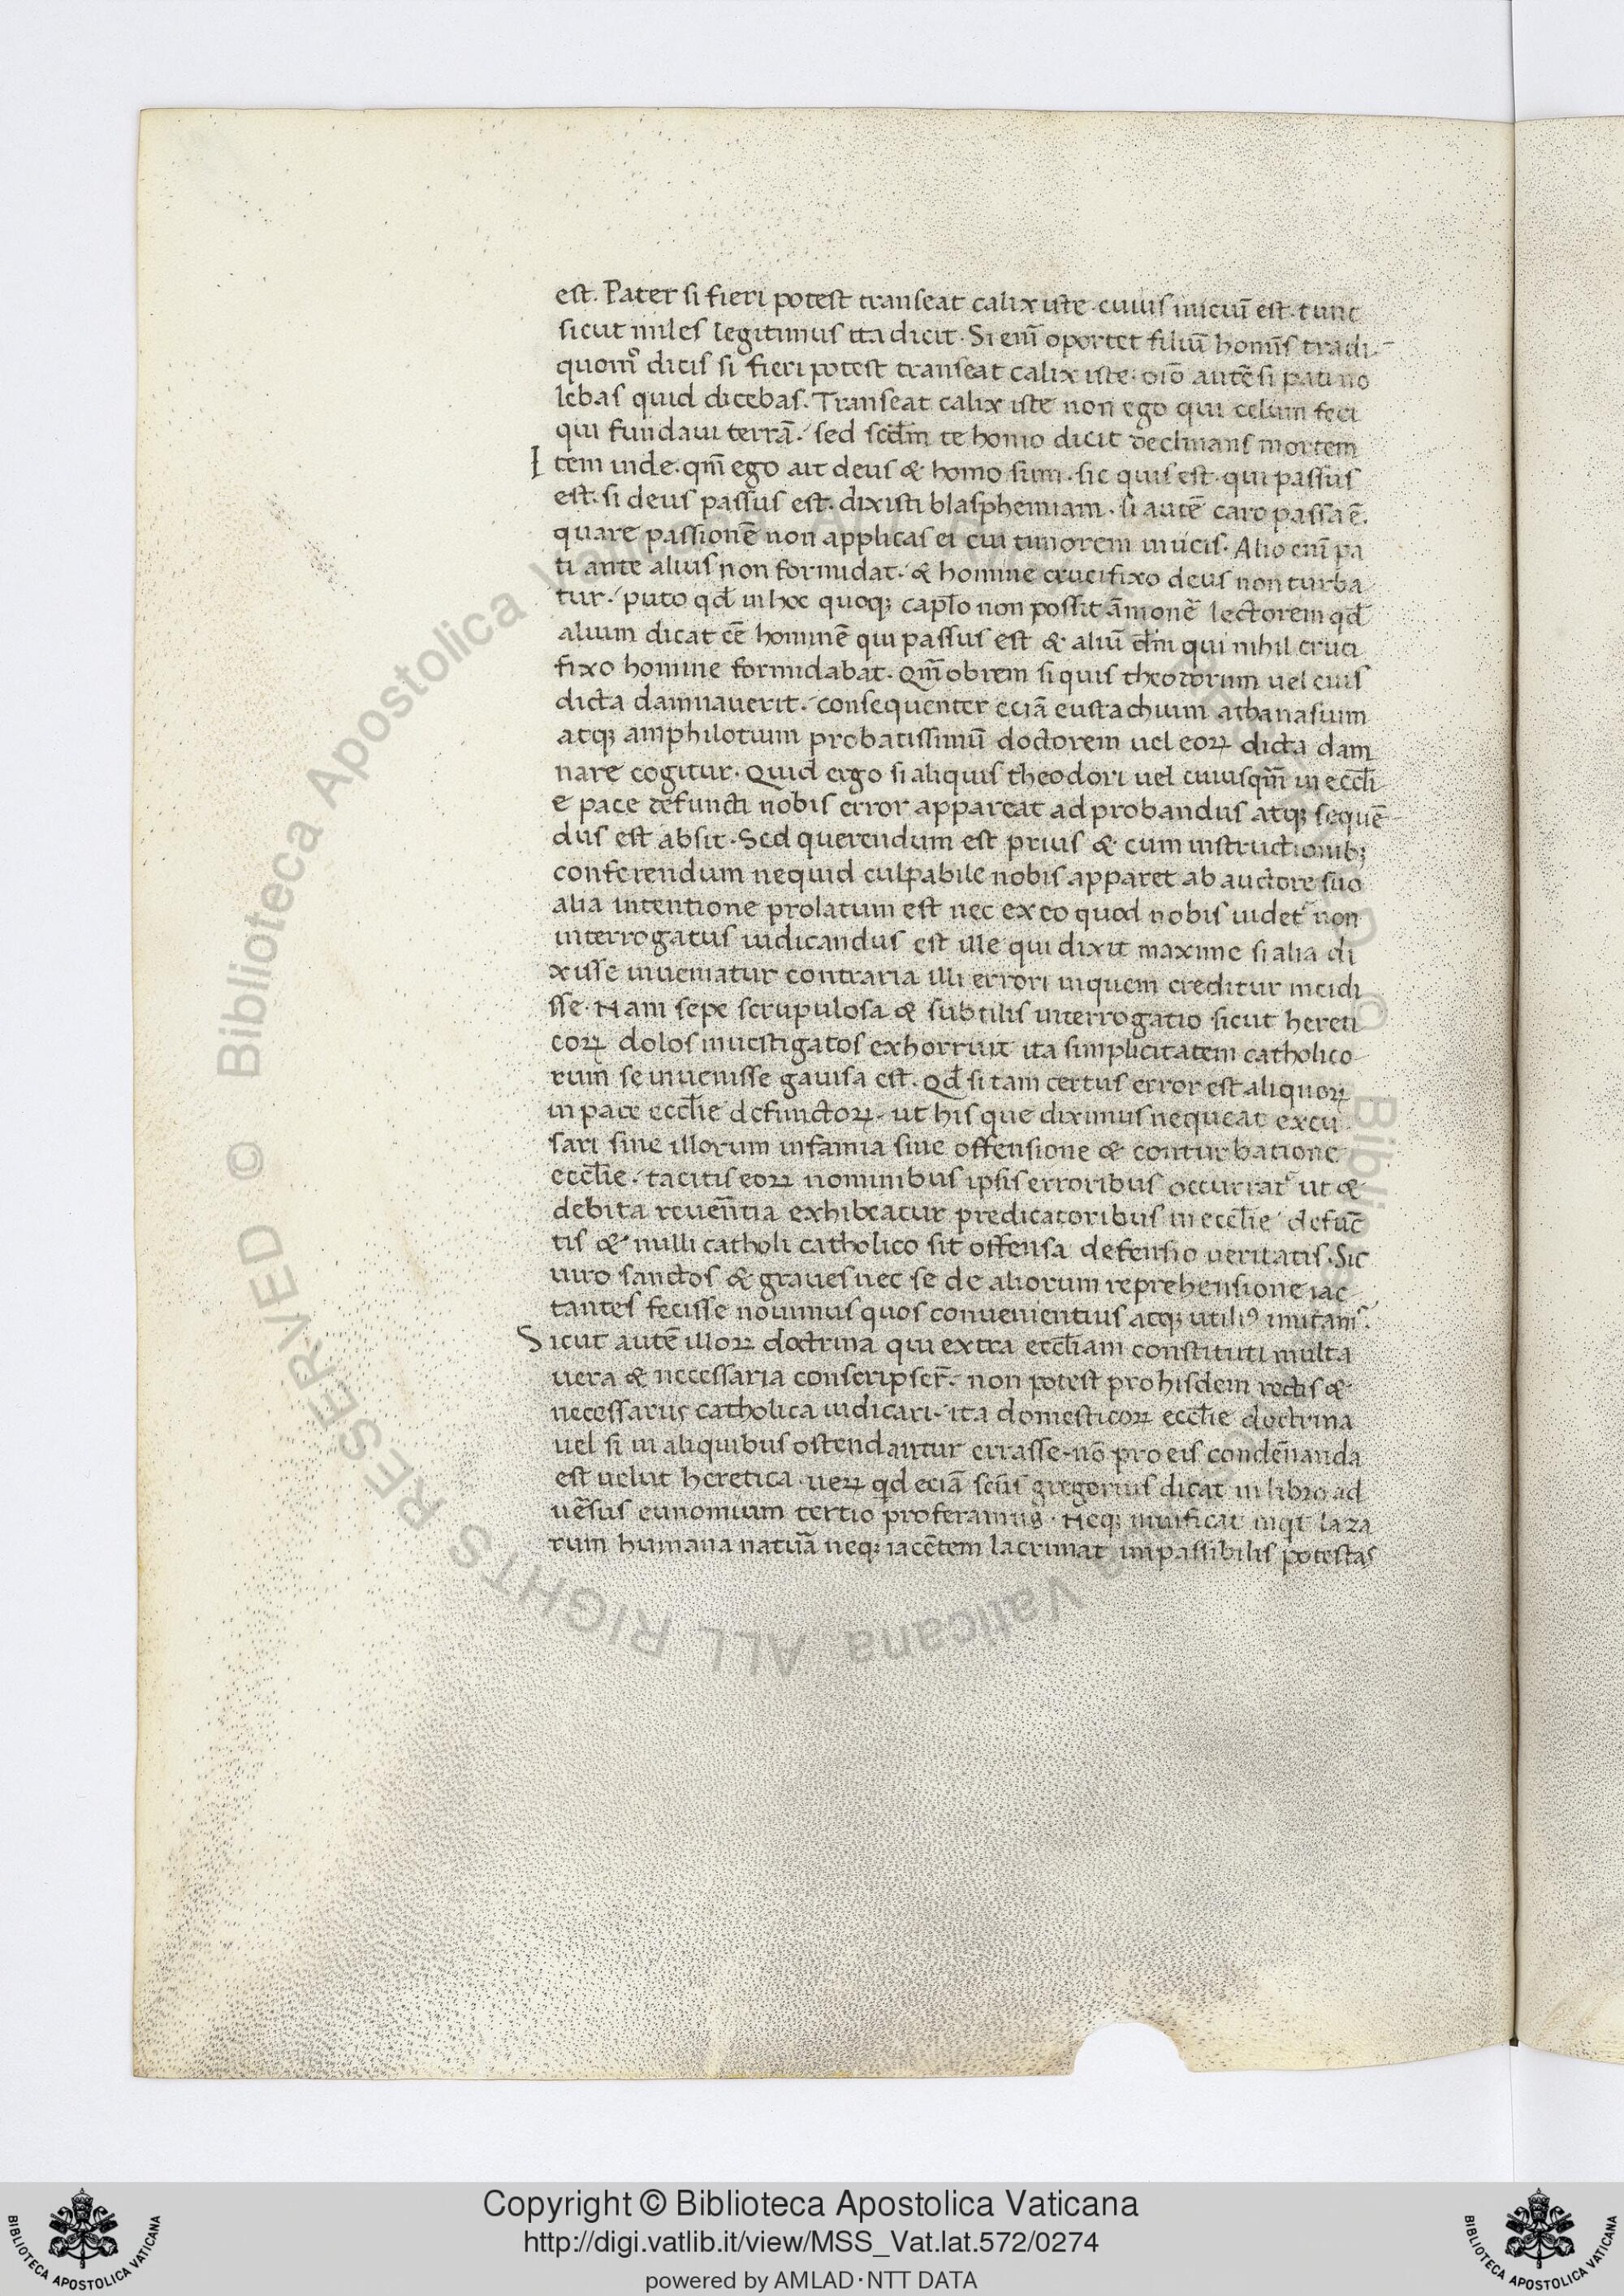 est. Pater si fieri potest transeat calix iste. cuius iniciū est. tunc
sicut miles legitimus ita dicit. Si enī oportet filiū homīs tradi
quomͦ dicis si fieri potest transeat calix iste. oīo autē si pati no
lebas quid dicebas. Transeat calix iste non ego qui celum feci
qui fundaui terrā. sed scdm̄ te homo dicit declinans mortem
Item inde. qm̄ ego ait deus & homo sum. sic quis est. qui passus
est. si deus passus est. dixisti blasphemiam. si autē caro passa ē.
quare passionē non applicas ei cui timorem inicis. Alio enī pa
ti ante alius non formidat. & homine crucifixo deus non turba
tur. puto qd̄ in hoc quoqꝫ capl̄o non possit āmonē lectorem qd̄
alium dicat eē hominē qui passus est & aliū dm̄ qui nihil cruci
fixo homine formidabat. Qm̄obrem si quis theodorum uel eius
dicta damnauerit. consequenter eciā eustachium athanasium
atqꝫ amphilotium probatissimū doctorem uel eoꝝ dicta dam
nare cogitur. Quid ergo si aliquis theodori uel cuiusqm̄ in eccl̄i
e pace defuncti nobis error appareat ad probandus atqꝫ sequē
dus est absit. Sed querendum est prius & cum instructionibꝫ
conferendum nequid culpabile nobis apparet ab auctore suo
alia intentione prolatum est nec ex eo quod nobis uidet᷑ non
interrogatus iudicandus est ille qui dixit maxime si alia di
xisse inueniatur contraria illi errori in quem creditur incidi
sse. Nam sepe scrupulosa & subtilis interrogatio sicut hereti
coꝝ dolos inuestigatos exhorruit ita simplicitatem catholico
rum se inuenisse gauisa est. Qd̄ si tam certus error est aliquoꝝ
in pace eccl̄ie defunctoꝝ. ut his que diximus nequeat excu
sari sine illorum infamia siue offensione & conturbatione
eccl̄ie. tacitis eoꝝ nominibus ipsis erroribus occurrat᷑ ut &
debita reuen̄tia exhibeatur predicatoribus in eccl̄ie defūc
tis & nulli catholi catholico sit offensa defensio ueritatis. Sic
uiro sanctos & graues nec se de aliorum reprehensione iac
tantes fecisse nouimus quos conuenientius atqꝫ utiliꝰ imitam᷑.
Sicut autē illoꝝ doctrina qui extra eccl̄iam constituti multa
uera & necessaria conscripser̄. non potest pro hisdem rectis &
necessariis catholica iudicari. ita domesticoꝝ eccl̄ie doctrina
uel si in aliquibus ostendantur errasse. nō pro eis condēnanda
est uelut heretica. ueꝝ qd eciā sc̄us gregorius dicat in libro ad
uēsus eunomium tertio proferamus. Neqꝫ uiuificat inqt laza
rum humana natuā neqꝫ iacētem lacrimat impassibilis potestas
Copyright © Biblioteca Apostolica Vaticana
http://digi.vatlib.it/view/MSS_Vat.lat.572/0274
powered by AMLAD·NTT DATA
BIBLIOTECA APOSTOLICA VATICANA
BIBLIOTECA APOSTOLICA VATICANA